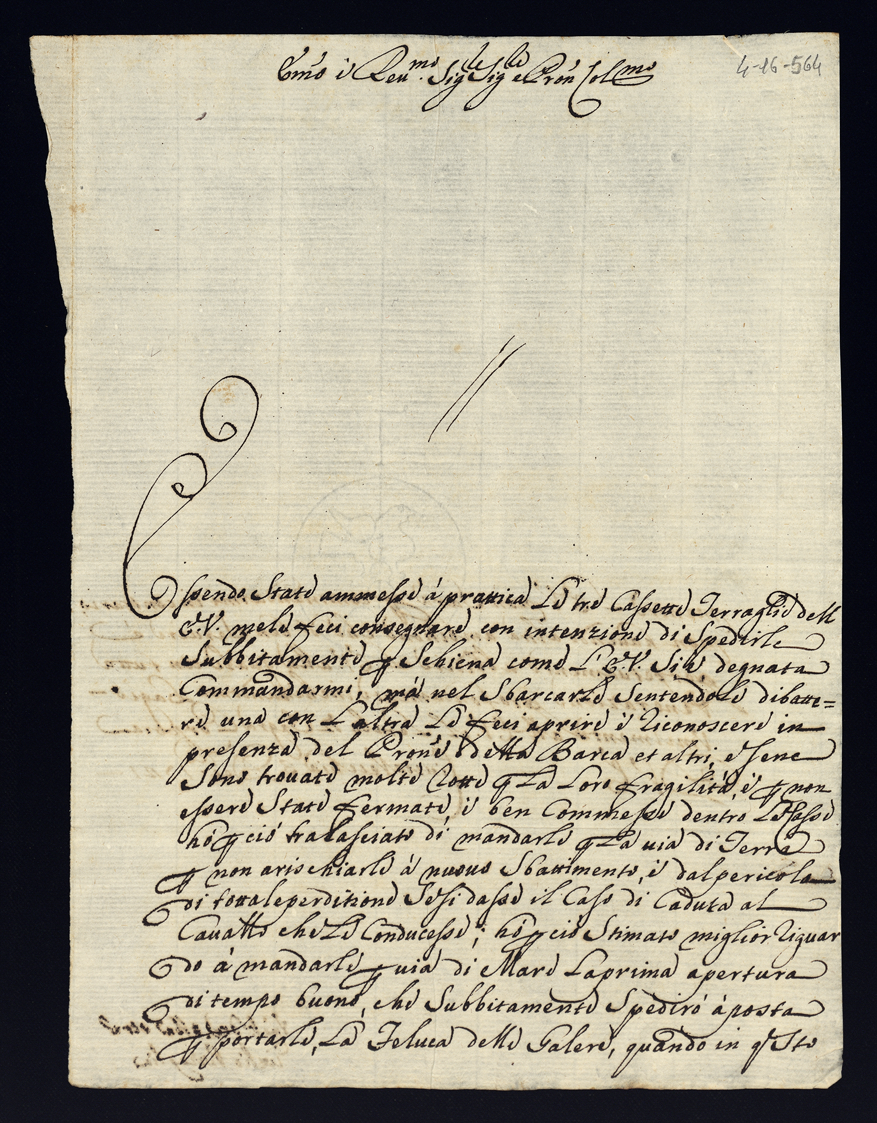 Emo è Reumo. Sigle Sigle e Pron Colmo
4-16-564
Essendo State ammesse á prattica Le tre Cassette Terraglie dell
E.V. mele feci consegnare con intenzione di Spedirle
Subbitamente p Schiena come L'E.V. Si è degnata
Commandarmi, má nel Sbarcarle Sentendole dibatte=
re una con L'altra Le feci aprire è riconoscere in
presenza del Prone detta Barca et altri, e Sene
Sono trouate molte rotte p La Loro fragilità, è p non
essere State fermate, è ben Commesse dentro Le Casse
hò p ciò tralasciato di mandarle p La uia di Terra
p non arischiarle á nuouo Sbattimento, è dal pericolo
di total perditione Se Si dasse il Caso di Caduta al
Cauallo che Le Conducesse; hò p ciò Stimato miglior riguar
do á mandarle p uia di Mare La prima apertura
di tempo buono, che Subbitamente Spedirò á posta
p portarle, La Feluca delle Galere, quando in qsto